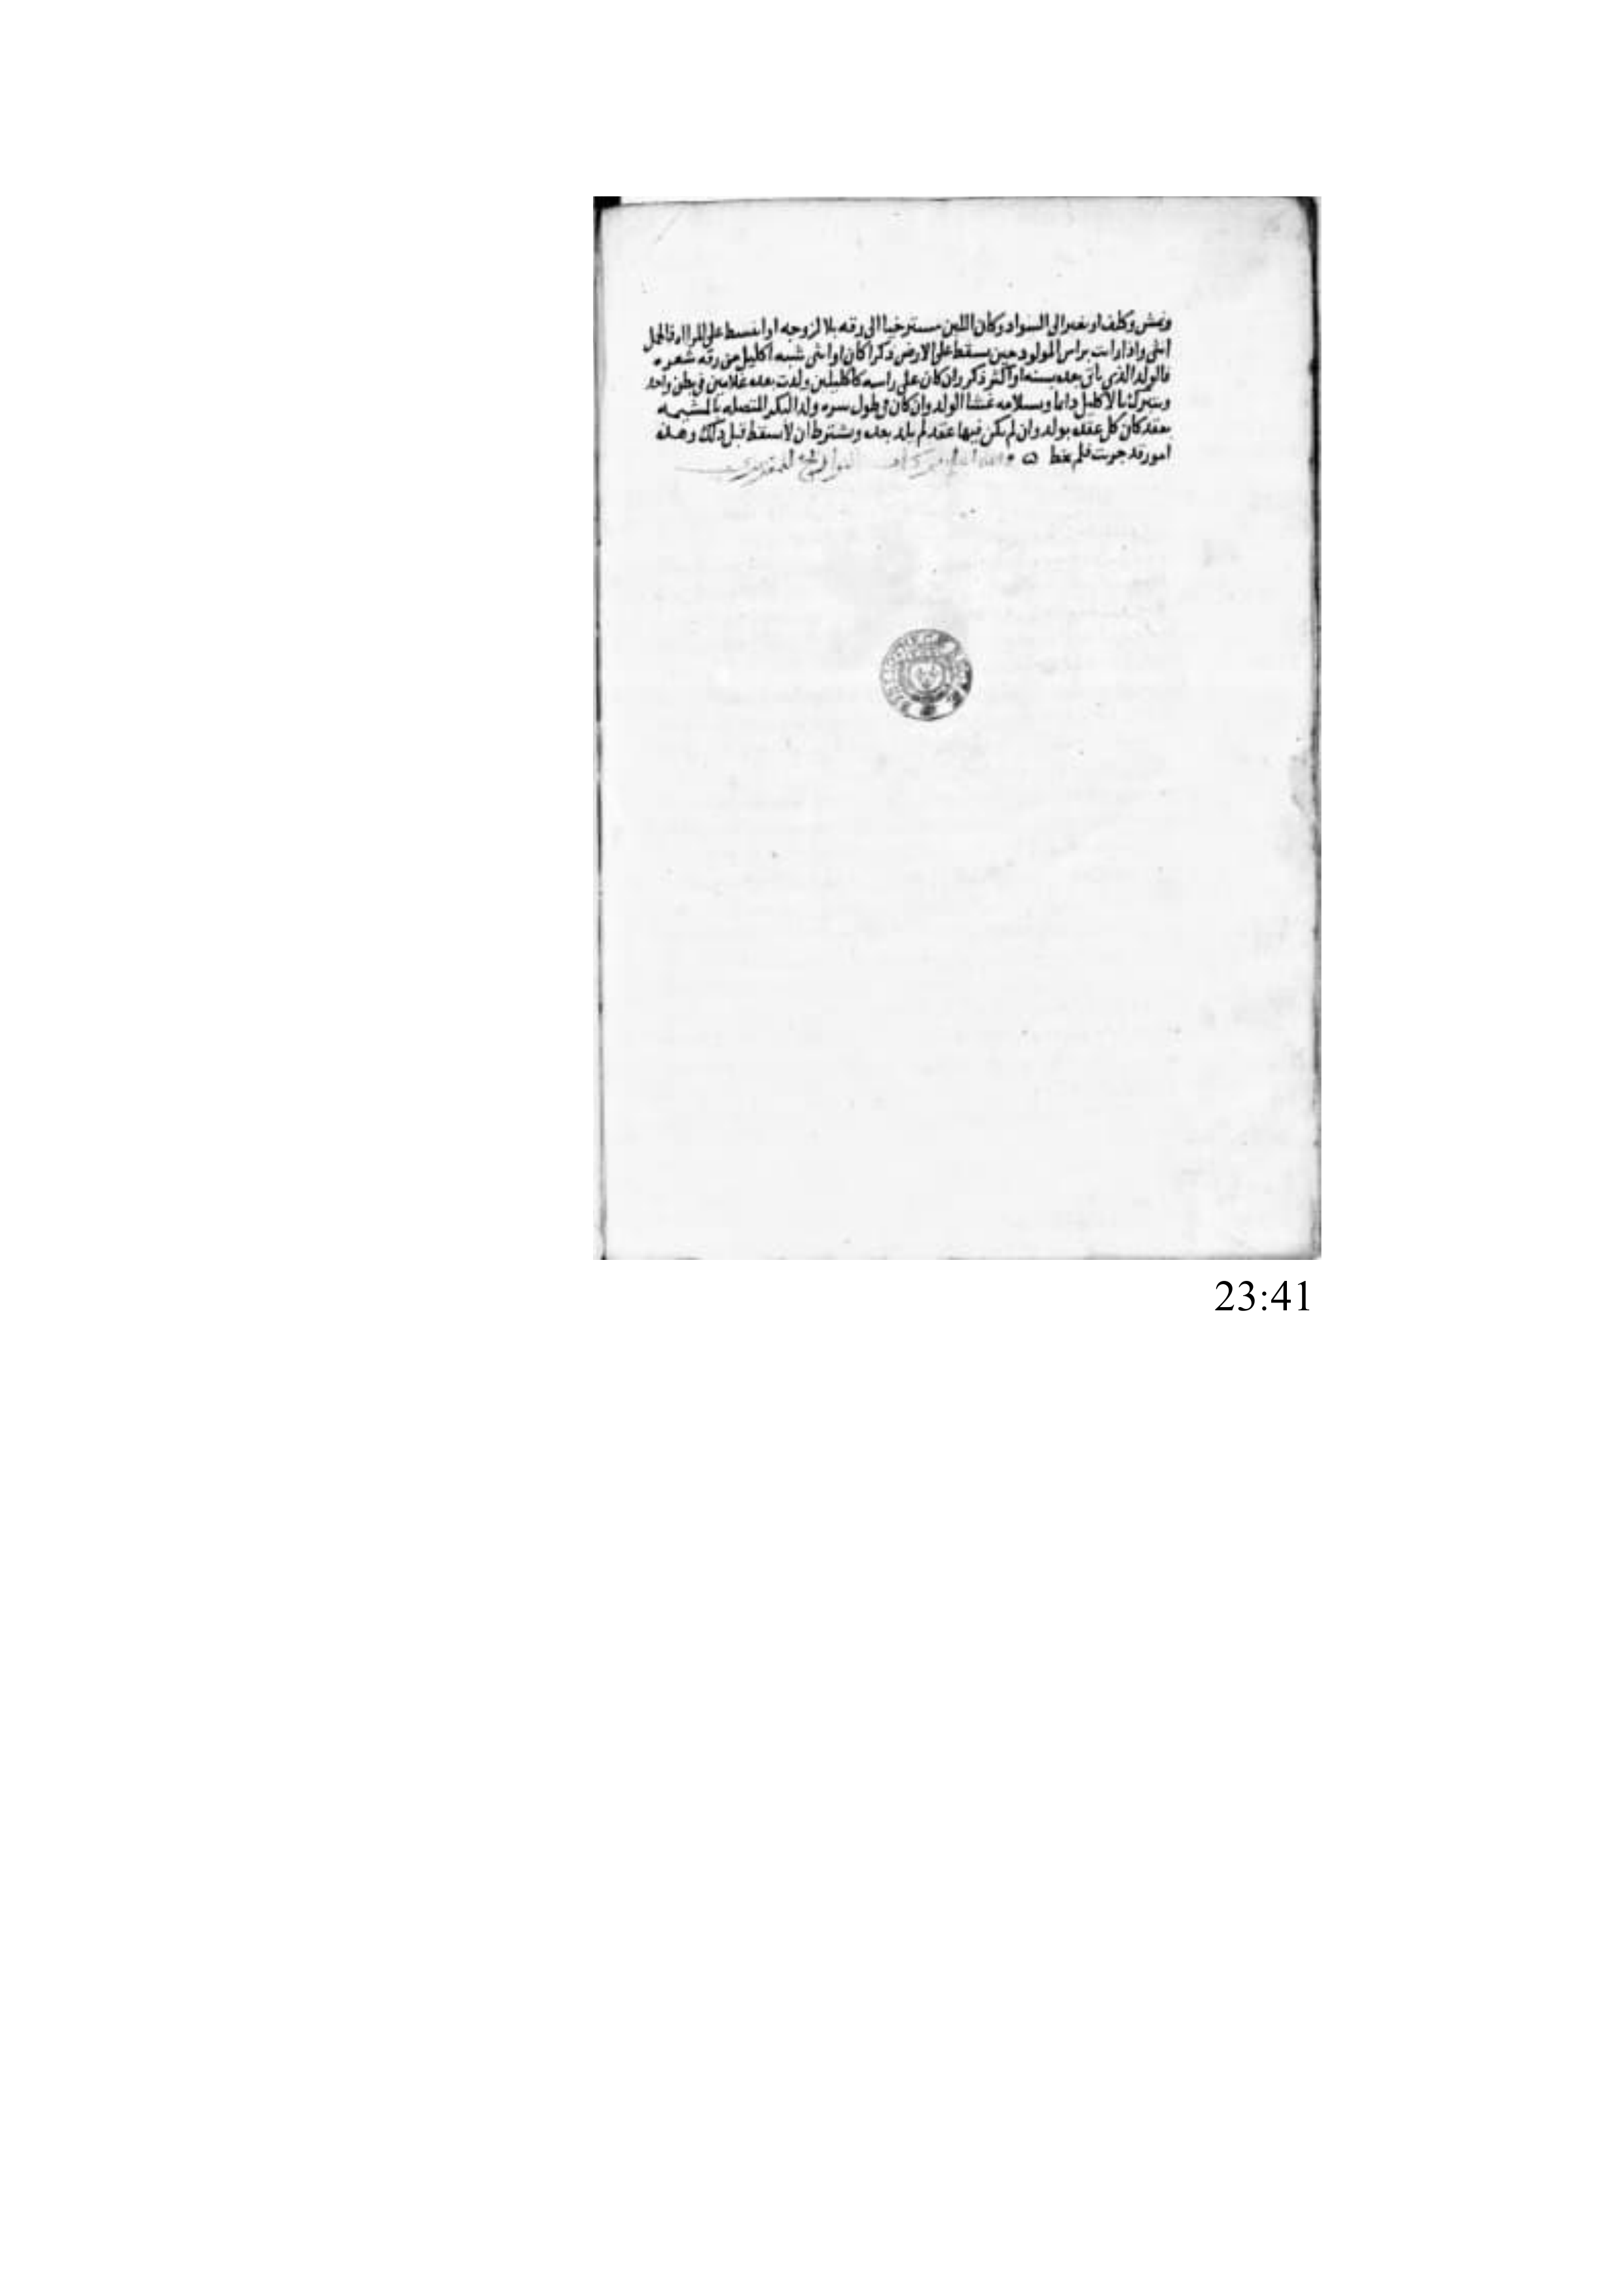 ونمش وكلف او تغير الى السواد وكان اللبن مسترخيا الى رقه بلا لزوجه او انبسط على المراه فالحمل
انثى واذا رايت براس المولود حين يسقط على الارض ذكرا كان او انثى شبه اكليل من رقه شعره
فالولد الذي ياتى بعده بسنه او اكثر ذكر وان كان على راسه كاكليلين ولدت بعده غلامين في بطن واحد
ويتبرك بالاكليل دايما وبسلامه غشا الولد وان كان في طول سره ولد البكر المتصله بالمشيمه
عقد كان كل عقده بولد وان لم يكن فيها عقد لم يلد بعده ويشترط ان لا سقط قبل ذلك وهذه
امور قد جربت فلم تخط
23:41